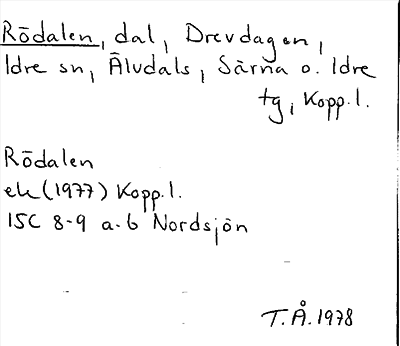 Rödalen, dal, Drevdagen,
Idre sn, Älvdals, Särna o. Idre
tg, Kopp.l.
Rödalen
ek (1977) Kopp.l.
15C 8-9 a-b Nordsjön
T.Å. 1978